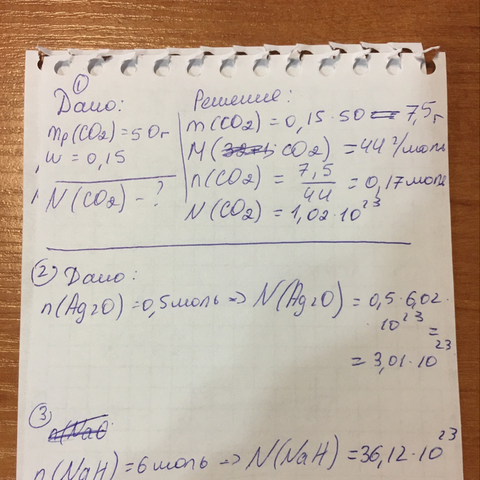 ①
Дано:
mр(CO2) = 50г
W = 0,15
N(CO2) - ?
Решение:
m(CO2) = 0,15 · 50 = 7,5г
M(CO2) = 44 г/моль
n(CO2) = 7,5/44 = 0,17моль
N(CO2) = 1,02 · 10²³
② Дано:
n(Ag2O) = 0,5моль => N(Ag2O) = 0,5 · 6,02 ·
· 10²³ =
= 3,01 · 10²³
③
n(NaH) = 6моль => N(NaH) = 36,12 · 10²³